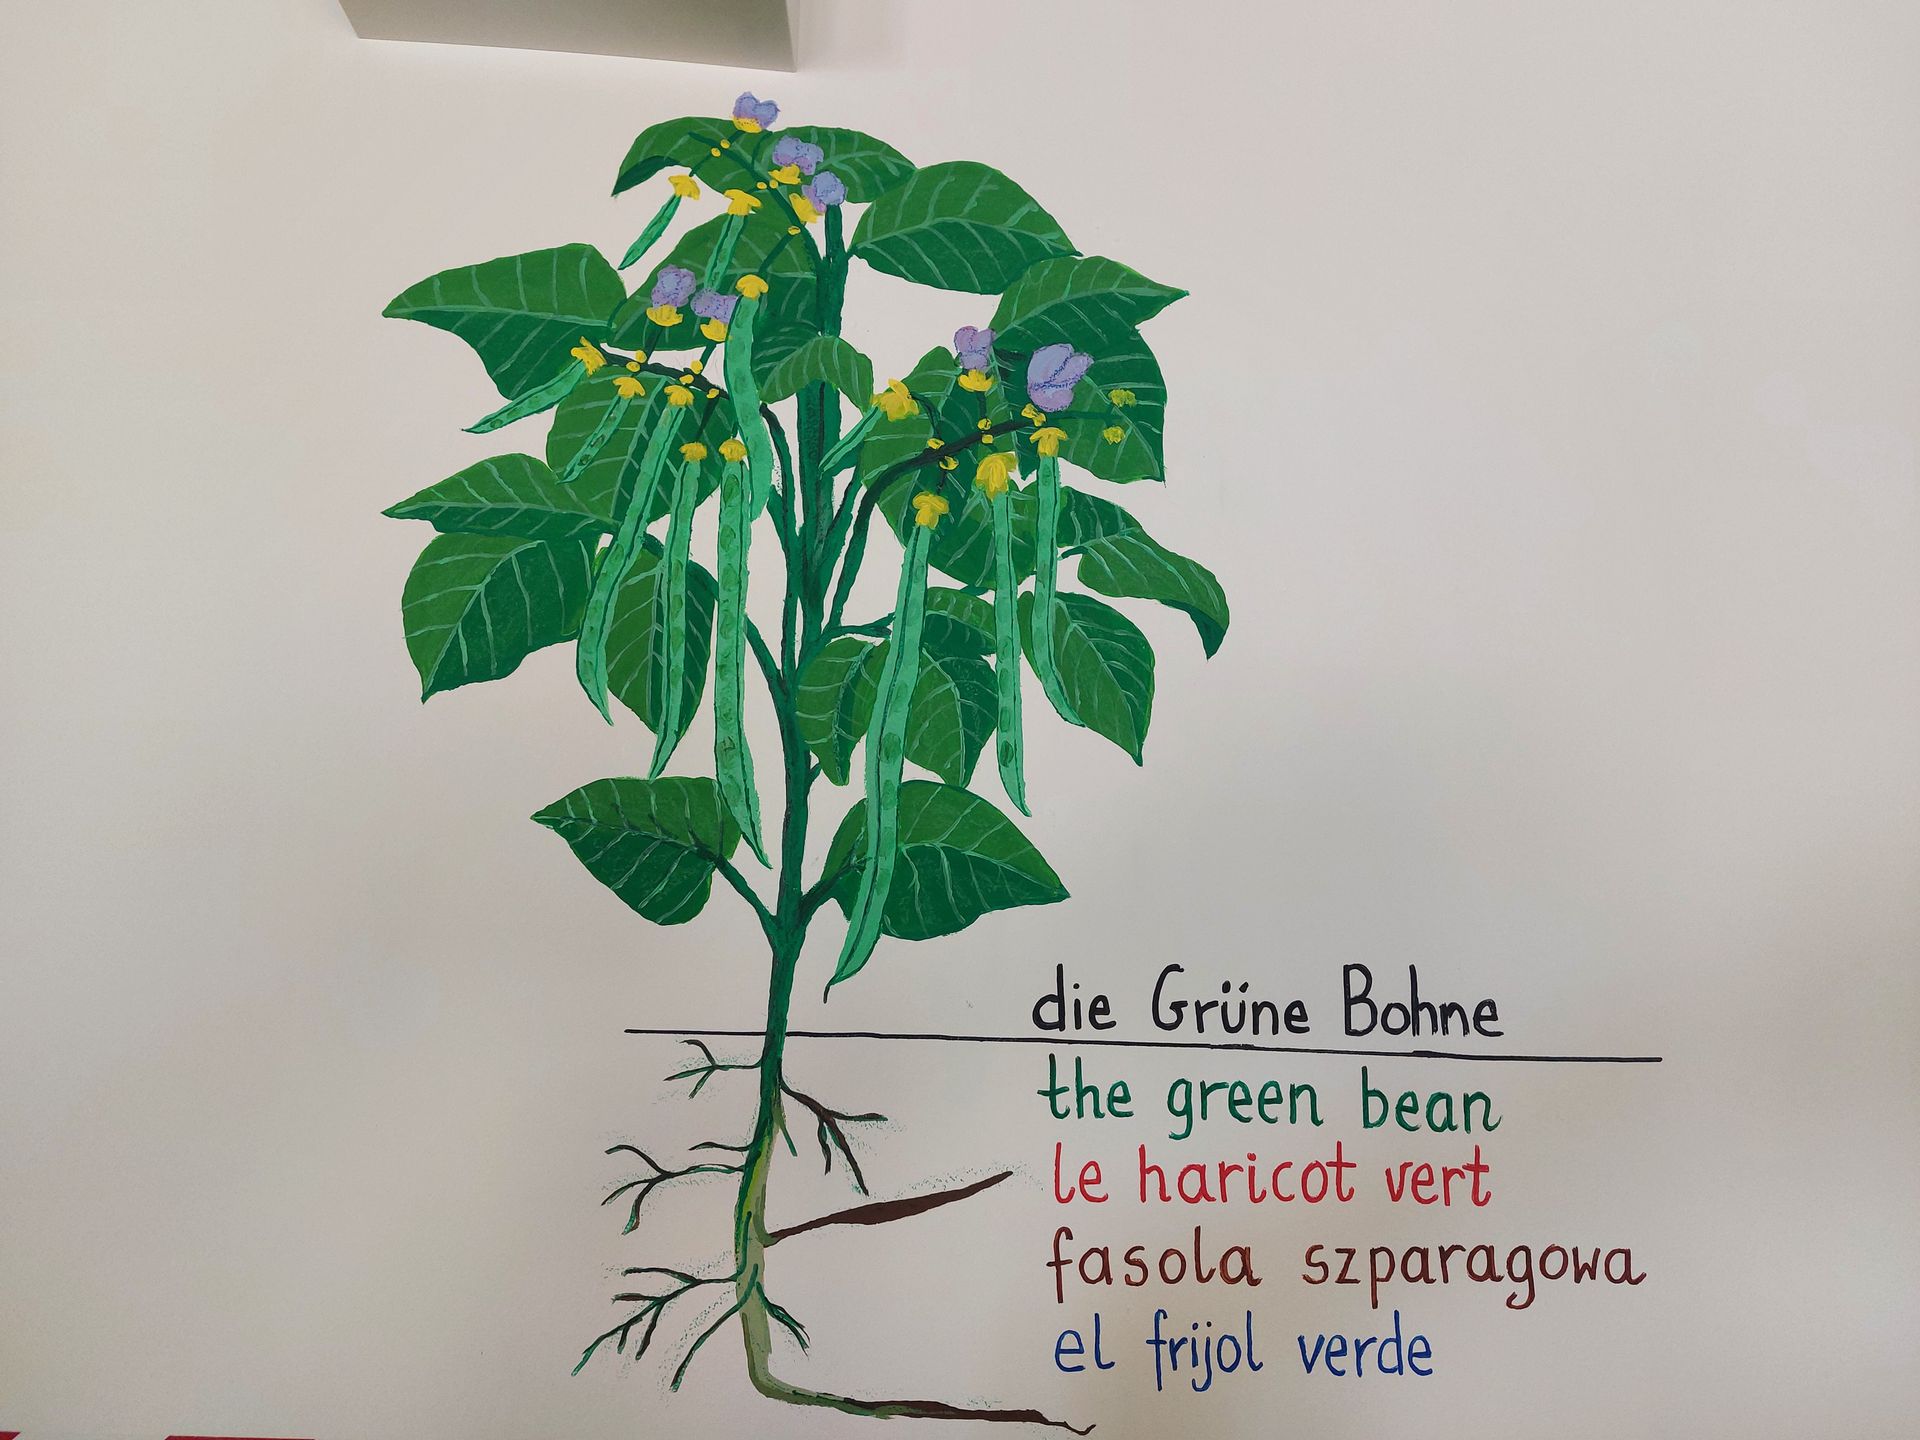 die Grüne Bohne
the green bean
le haricot vert
fasola szparagowa
el frijol verde